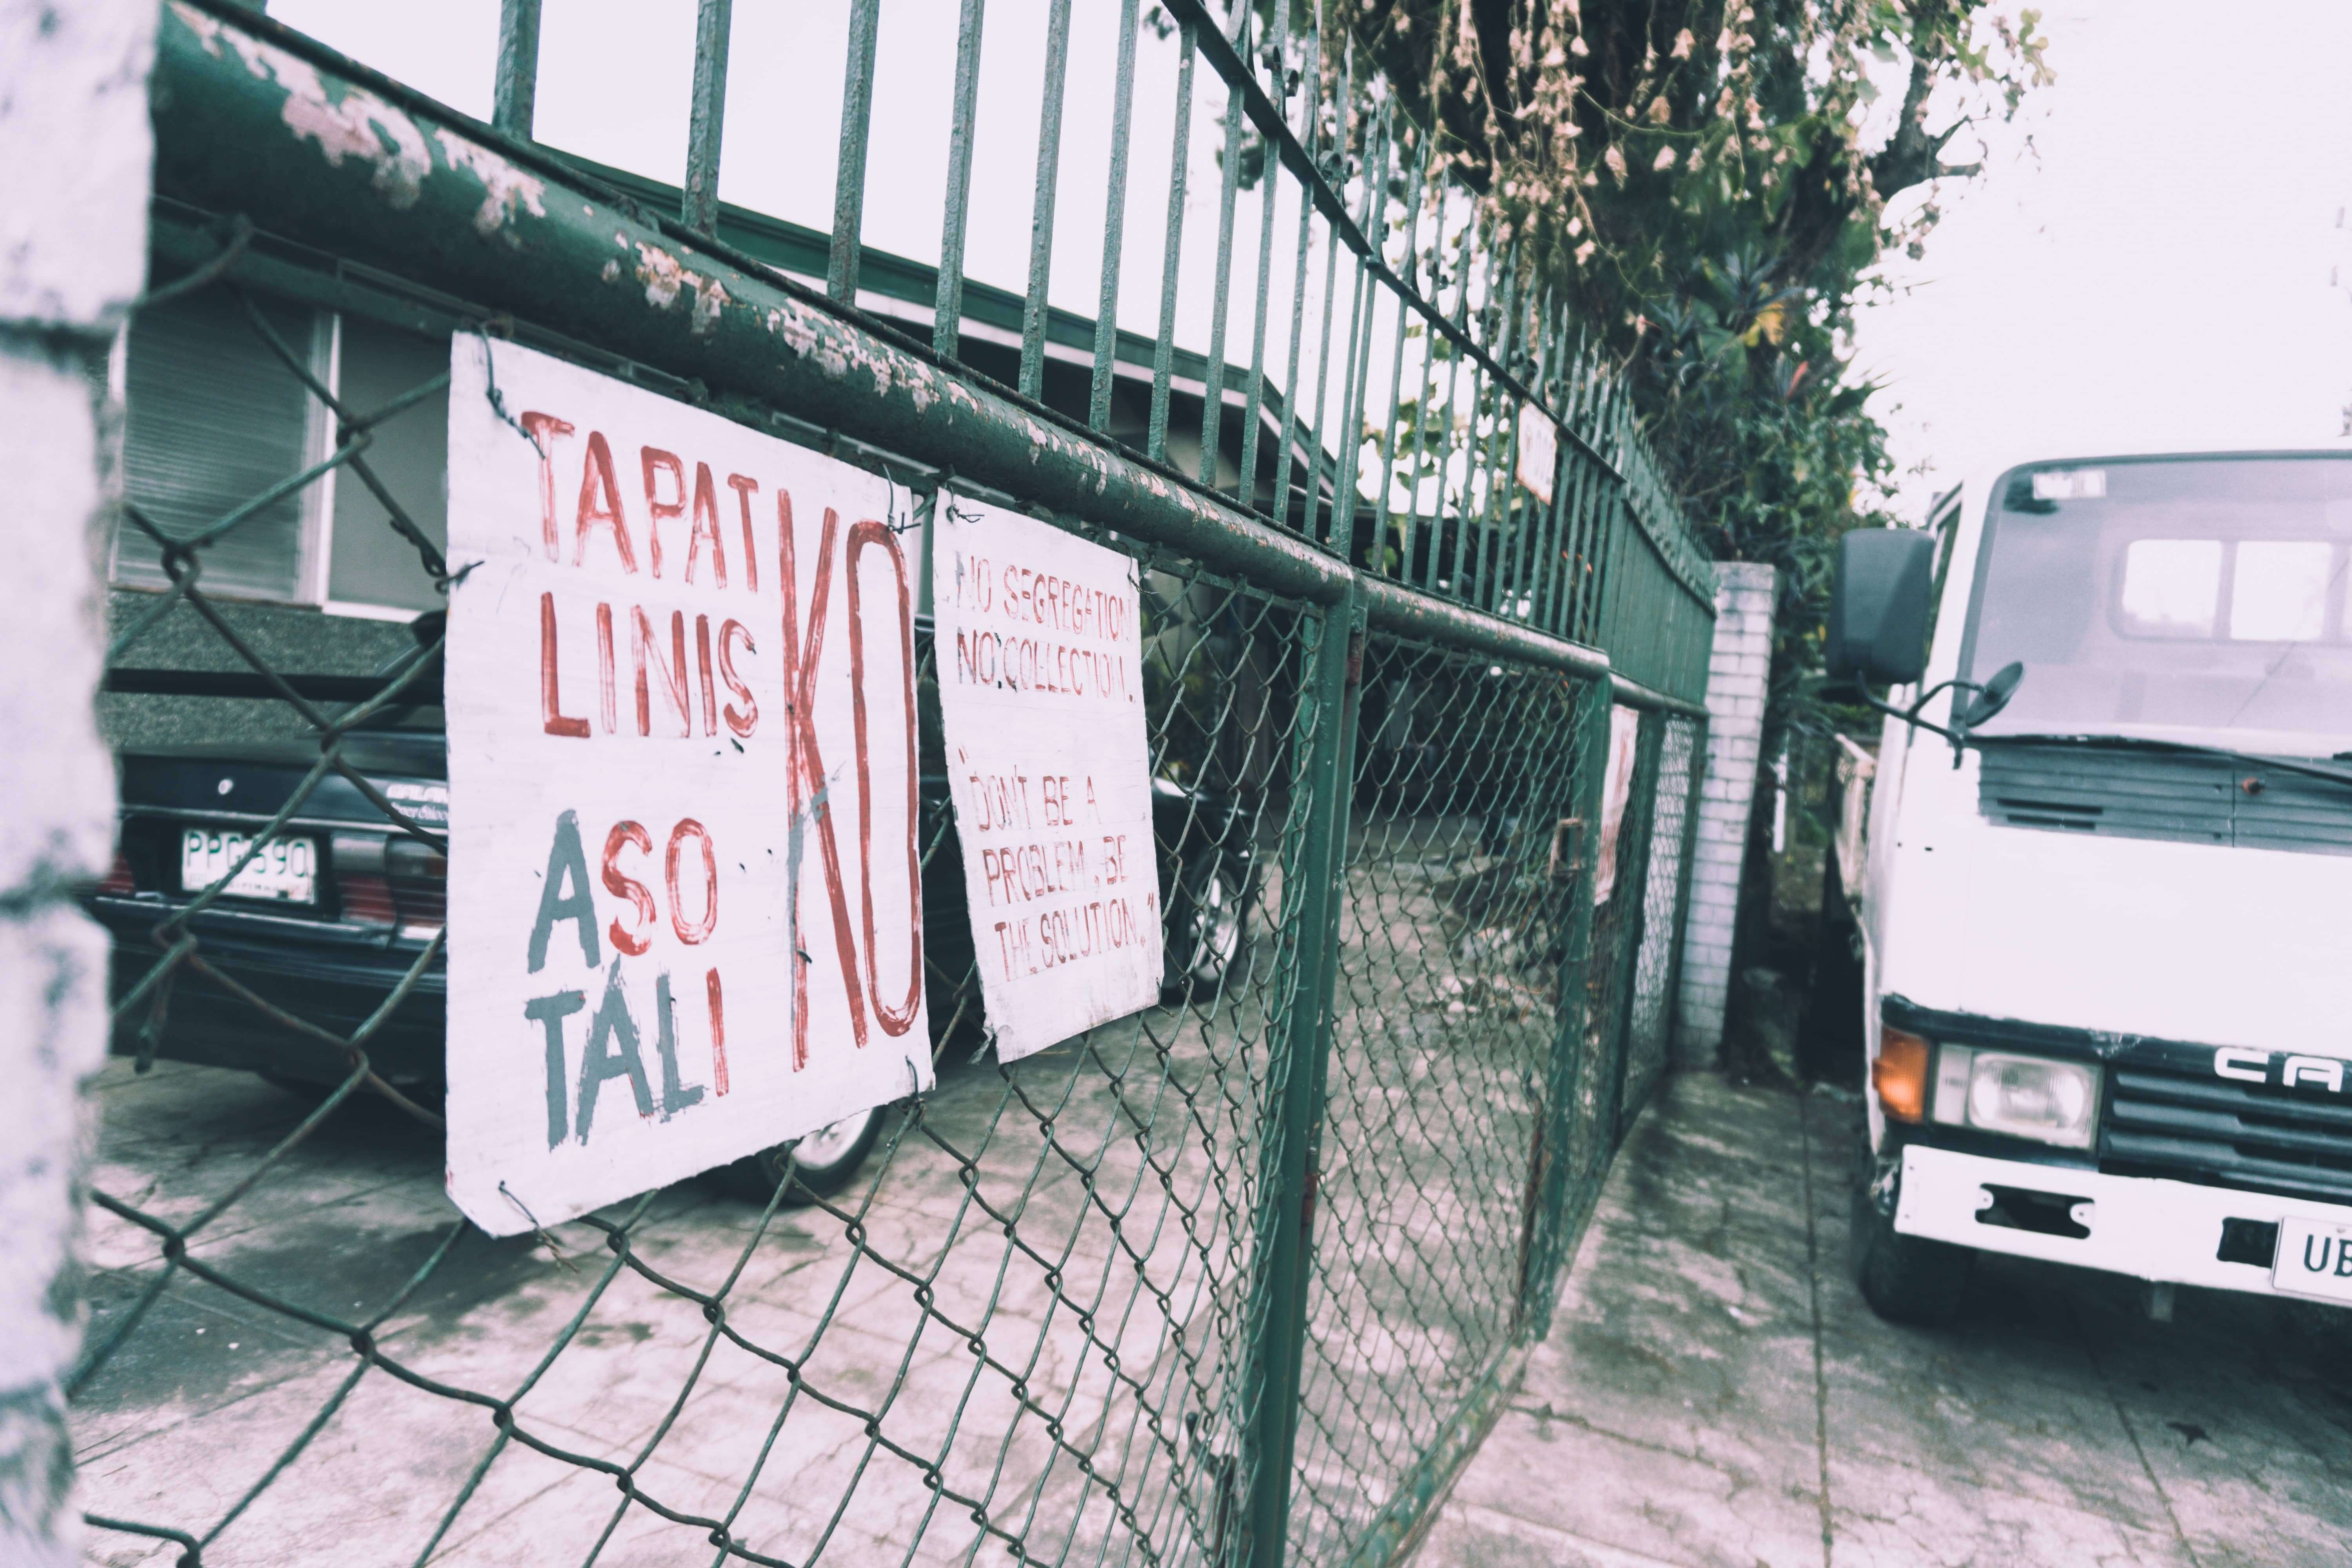 TAPAT KO
LINIS
ASO
TALI
NO SEGREGATION
NO COLLECTION.
"DON'T BE A
PROBLEM, BE
THE SOLUTION."
GALAN
PPG 590
CA
UB